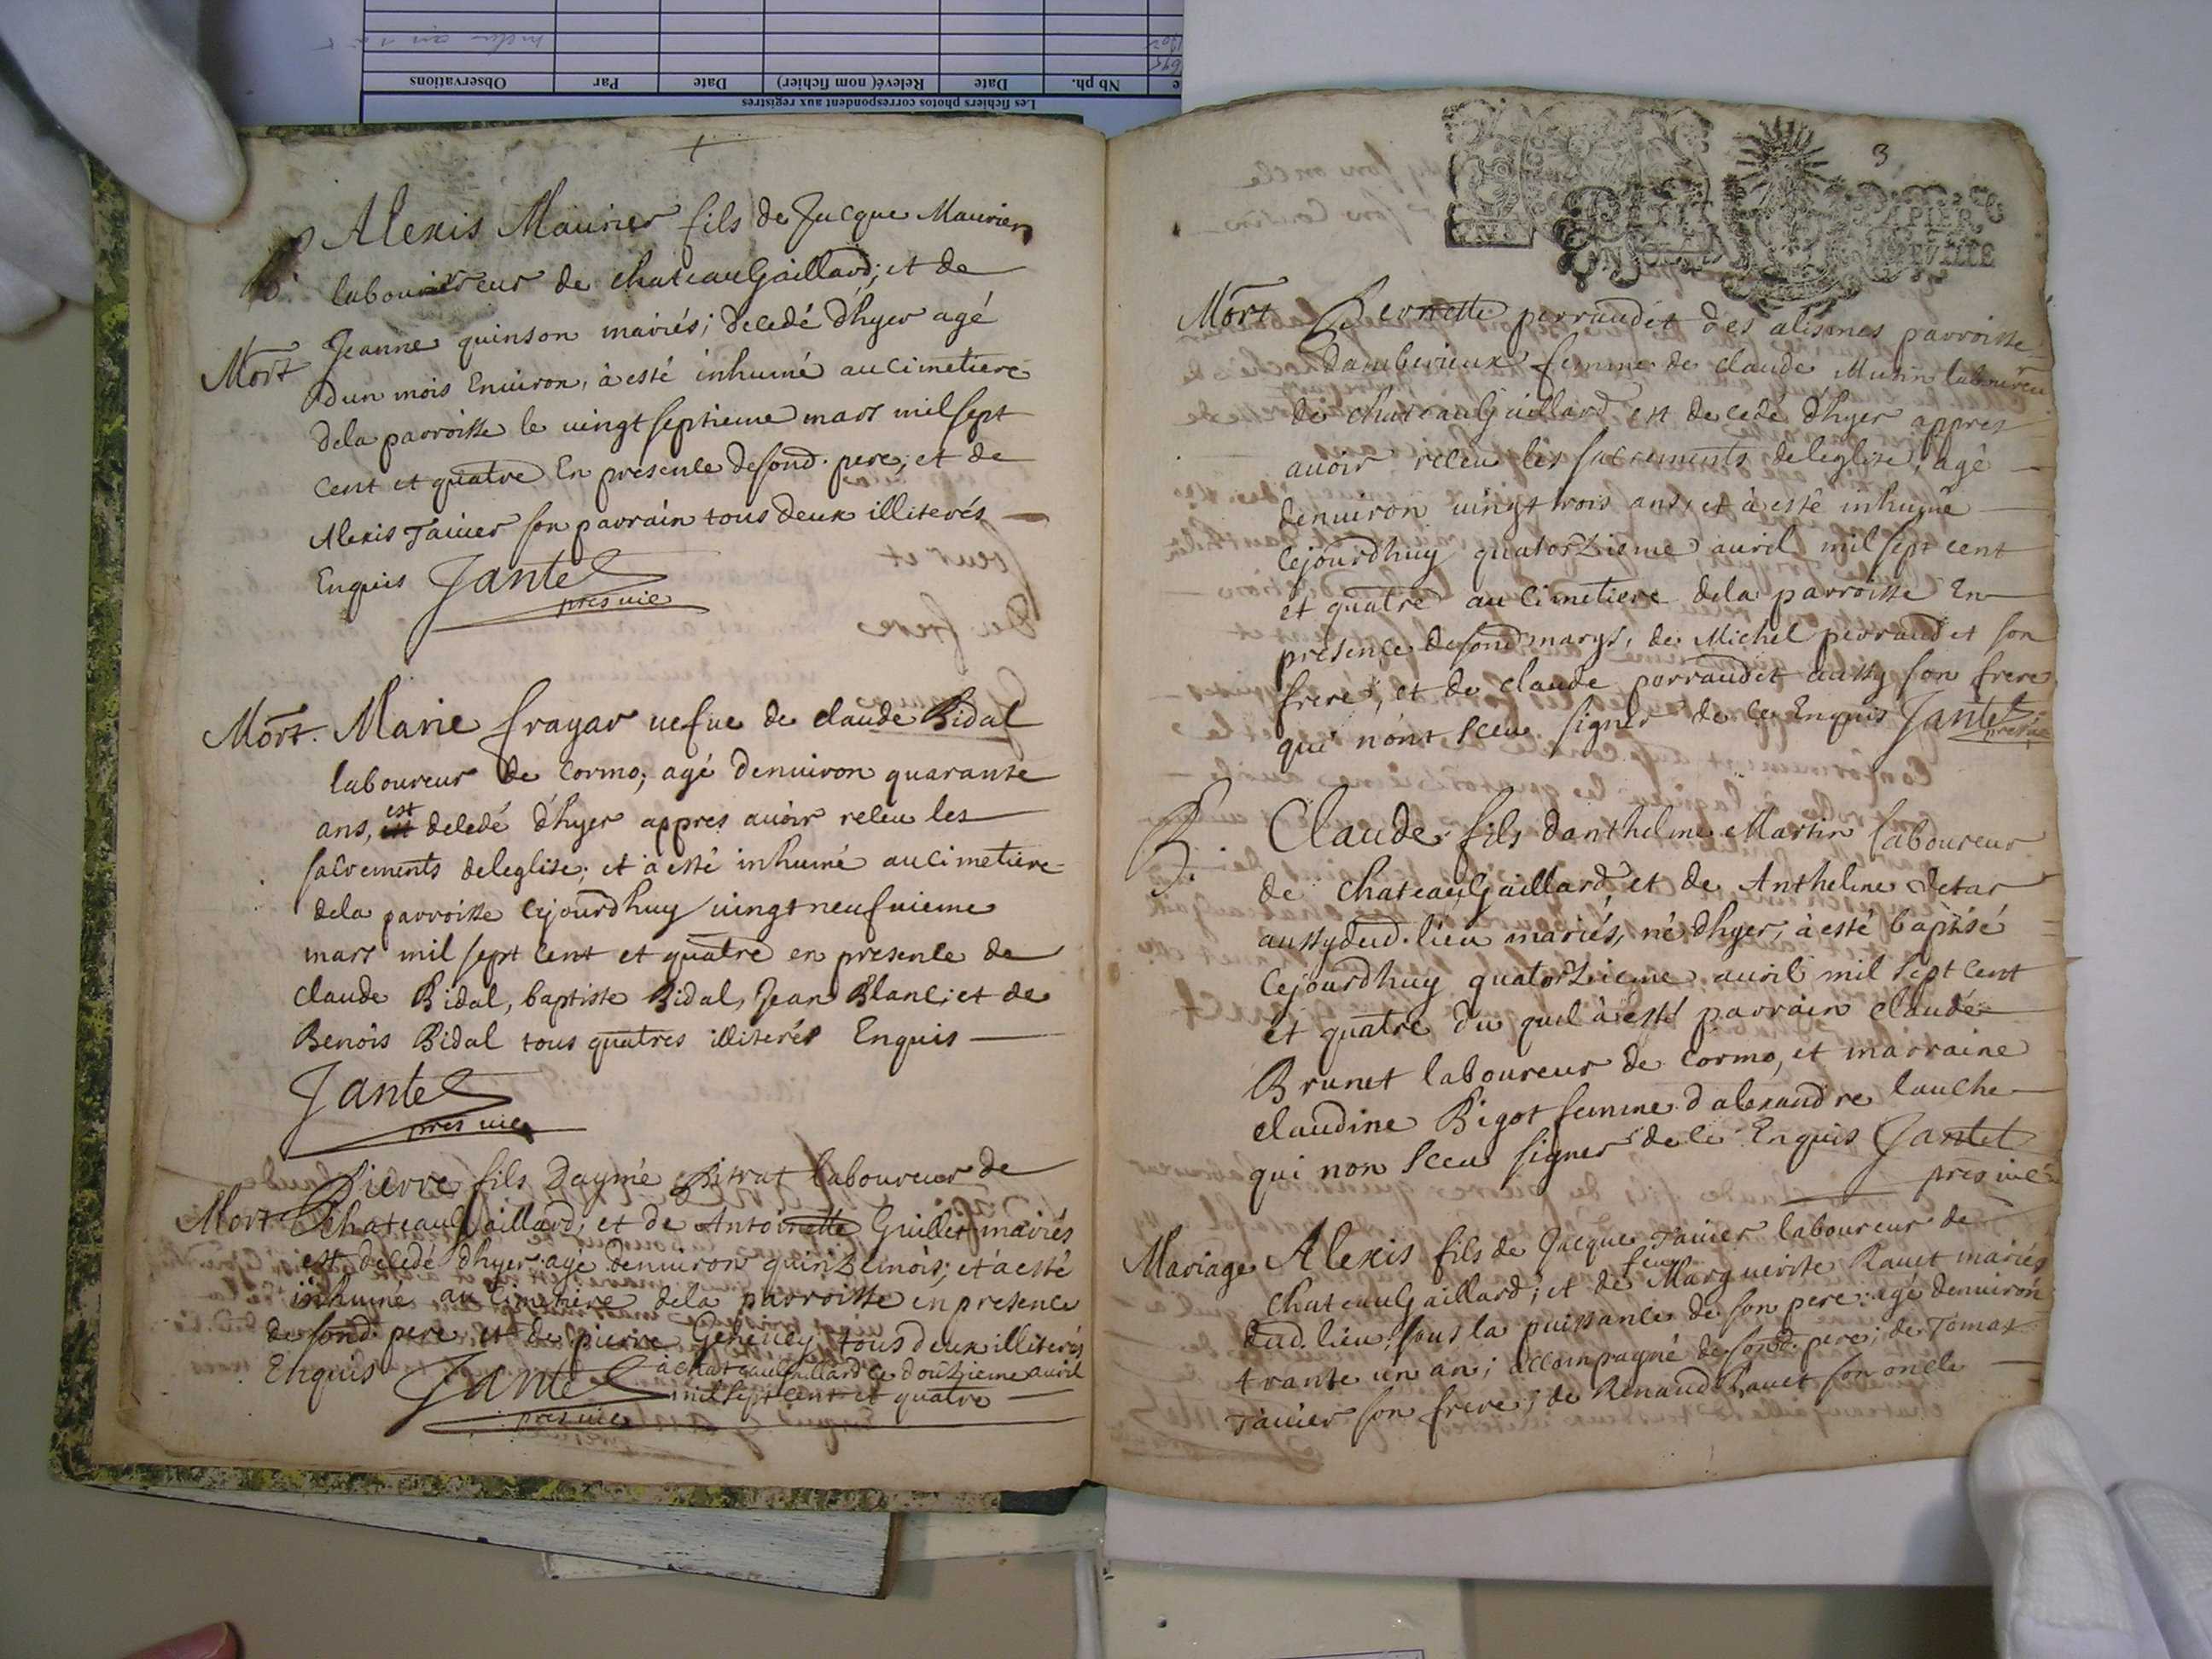 Les fichiers photos correspondent aux registres
Nb ph.
Date
Relevé (nom fichier)
Date
Par
Observations
Alexis Maurier fils de Jacque Maurier
laboureur de chateauGaillard; et de
Mort Jeanne quinson mariés; decedé d'hyer agé
dun mois Enuiron, à esté inhumé au cimetiere
dela parroisse le uingt septieme mars mil sept
cent et quatre En presence desond. pere, et de
Alexis Tauier son parrain tous deux illiterés
Enquis Jantet
pres uic
Mort. Marie frayar uefue de claude Bidal
laboureur de Cormo; agé denuiron quarante
ans, est decedé d'hyer appres auoir receu les
sacrements deleglise; et à esté inhumé au cimetiere
dela parroisse cejourdhuy uingt neufuieme
mars mil sept cent et quatre en presence de
claude Bidal, baptiste Bidal, Jean Blanc; et de
Benois Bidal tous quatres illiterés Enquis
Jantet
pres uic
Pierre fils Daymé Bitrat laboureur de
Mort ChateauGaillard; et de Antoinette Guillet mariés
est decedé d'hyer agé denuiron quinze mois; et à esté
inhumé au Cimetiere dela parroisse en presence
de sond. pere et de pierre tous deux illiterés
Enquis Jantet à chateauGaillard ce douzieme auril
mil sept cent et quatre
pres uic
3
PAPIER
Mort Pernette perraudet des alismes parroisse
damberieux femme de claude Mutin laboureur
de chateauGaillard est decedé d'hyer appres
auoir receu les sacrements deleglise, agé
denuiron uingt trois ans, et à esté inhumé
cejourdhuy quatorzieme auril mil sept cent
et quatre au cimetiere dela parroisse En
presence desond marys, de Michel perraudet son
frere, et de claude perraudet aussy son frere
qui n'ont sceu signer de ce Enquis Jantet
pres uic
B. Claude fils danthelme Martin laboureur
de chateauGaillard, et de Anthelme Jetar
aussy dud. lieu mariés, né d'hyer, à esté baptisé
cejourdhuy quatorzieme auril mil sept cent
et quatre du quel à esté parrain claude
Brunet laboureur de Cormo, et marraine
claudine Bigot femme d'alexandre lauche
qui non sceu signer de ce Enquis Jantet
pres uic
Mariage Alexis fils de Jacque Tauier laboureur de
chateauGaillard; et de feue Marguerite Rauet mariés
dud. lieu, sous la puissance de son pere: agé denuiron
trante un an; accompagné de sond. pere; de Tomas
Tauier son frere; de Renaud Rauet son oncle